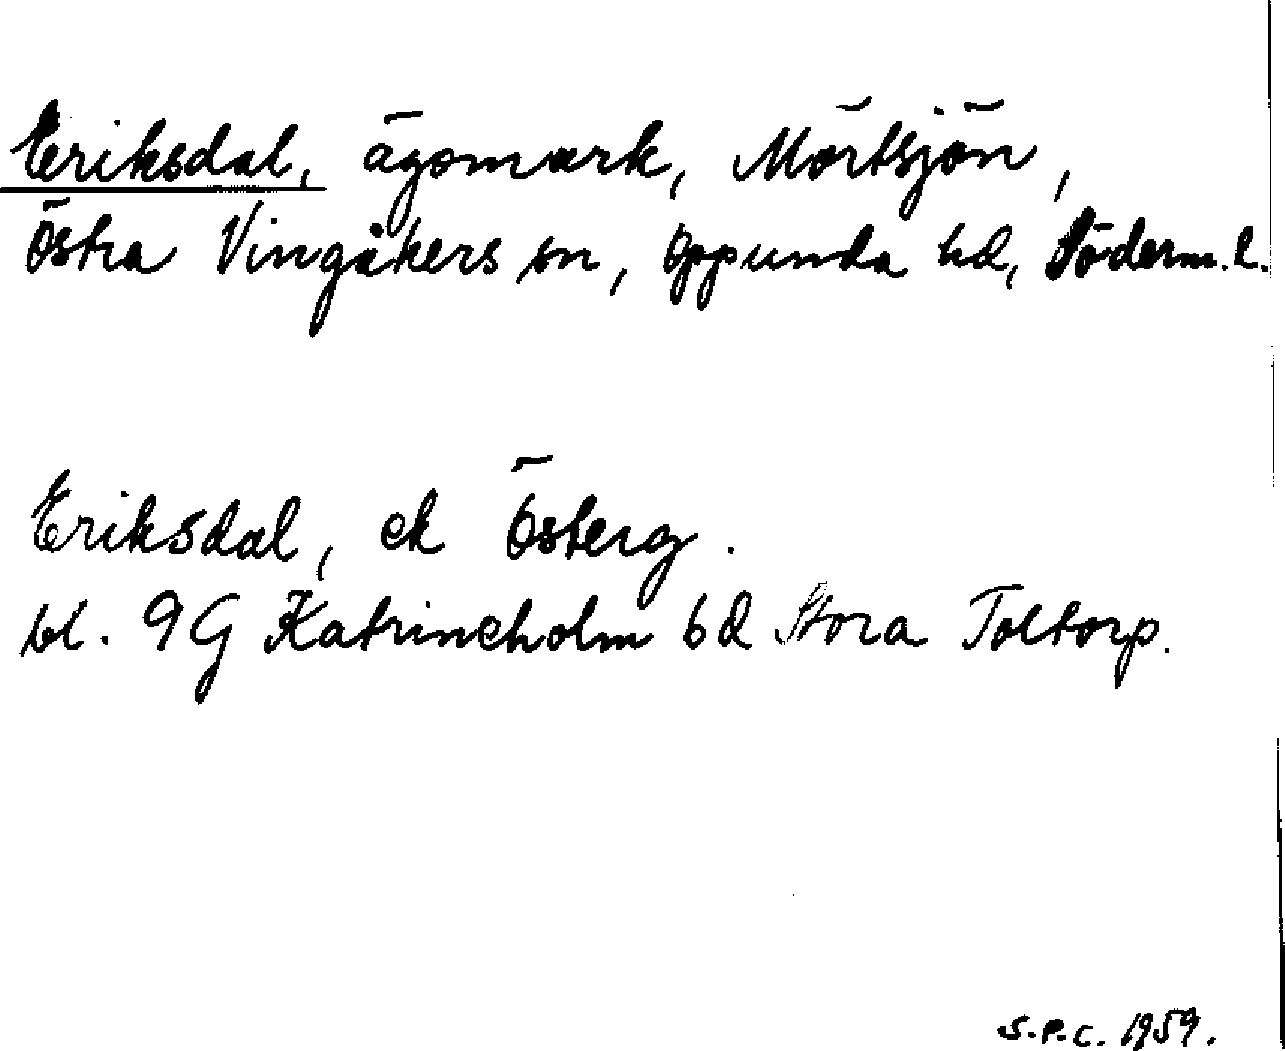 Eriksdal, ägomark, Mörtsjön,
Östra Vingåkers sn, Oppunda hd, Söderm. l.
Eriksdal, ek Österg.
bl. 9G Katrineholm 6d Stora Toltorp.
S.P.C. 1959.